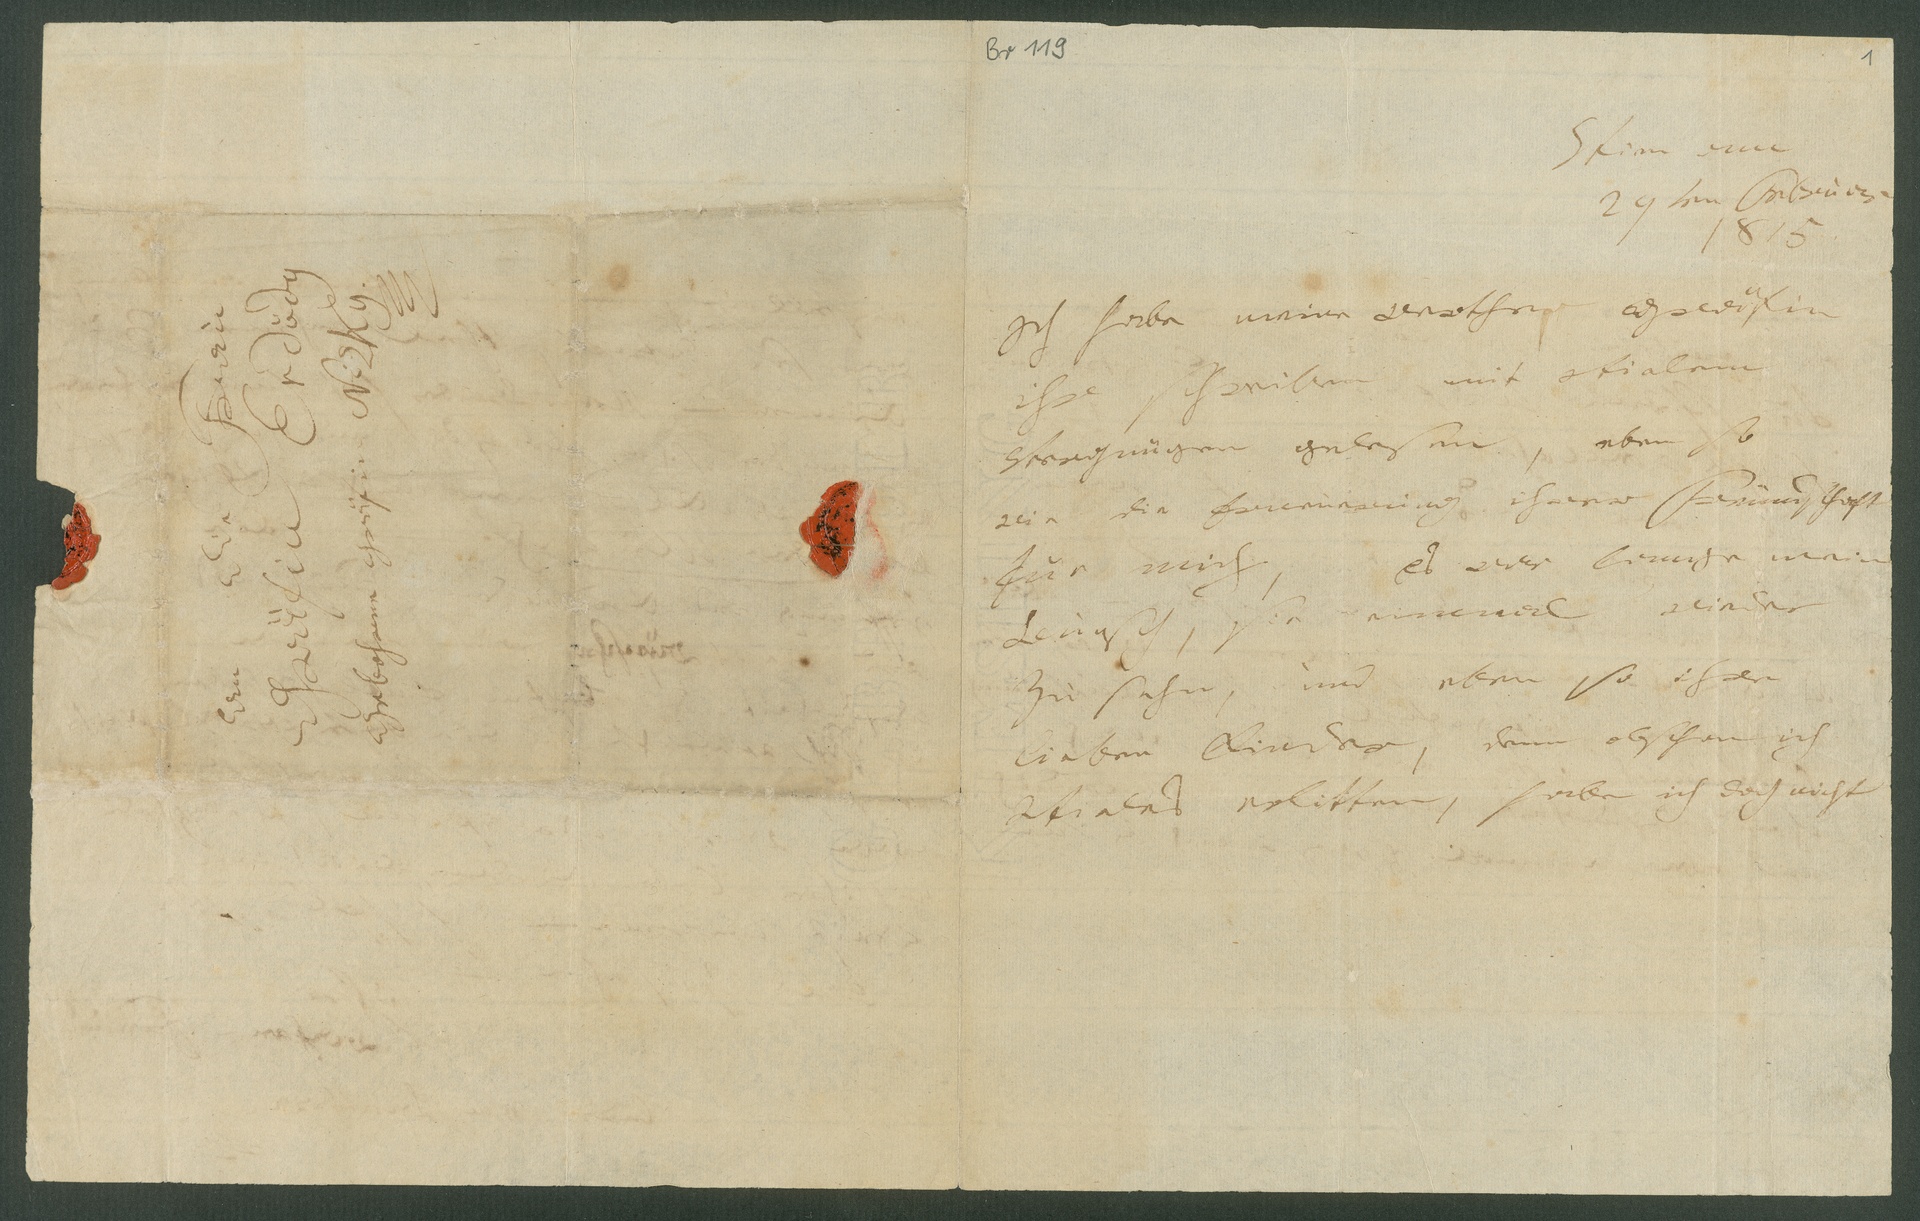 An die Frau
Gräfin Erdödy
Gebohrne gräfin Nizky.
Br 119
1
Wien am
29ten Februar
1815
Ich habe meine werthe gräfin
ihr schreiben mit vielem
Vergnügen gelesen, eben so
wie die Erneuerung ihrer Freundschaft
für mich, Es war lange mein
Wunsch, sie einmal wieder
zu sehn, und eben so ihre
lieben Kinder, denn obschon ich
Vieles erlitten, habe ich doch nicht